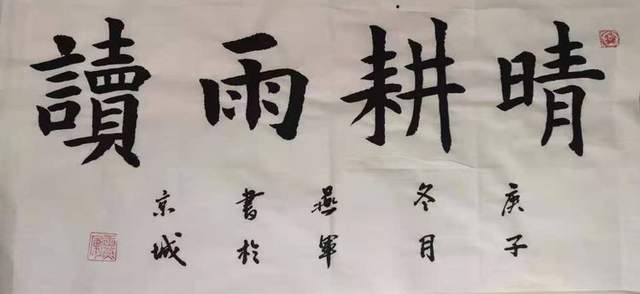 晴耕雨讀
庚子
冬月
燕軍
書於
京城